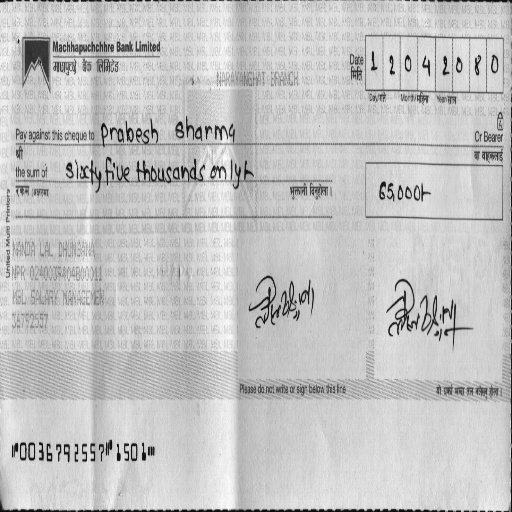 Machhapuchchhre Bank Limited
माछापुच्छ्रे बैंक लिमिटेड
NARAYANGHAT BRANCH
Date 1 2 0 4 2 0 8 0
मिति
Day/गते Month/महिना Year/साल
Pay against this cheque to Prabesh Sharma
Or Bearer
श्री
वा वाहकलाई
the sum of Sixty five thousands only/-
रकम अक्षरमा
भुक्तानी दिनुहोला ।
65,000/-
United Multi Printers
NANDA LAL DHUNGANA
MBL SALARY
36792557
Please do not write or sign below this line
⑈0036792557⑈1501⑈